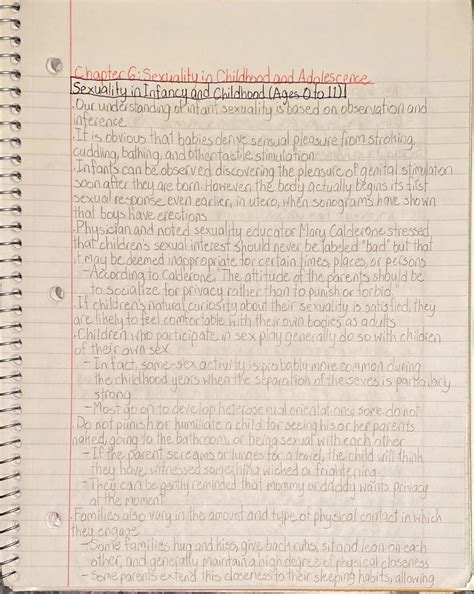 Chapter 6: Sexuality in Childhood and Adolescence
Sexuality in Infancy and Childhood (Ages 0 to 11)
• Our understanding of infant sexuality is based on observation and
inference
• It is obvious that babies derive sensual pleasure from stroking,
cuddling, bathing, and other tactile stimulation
• Infants can be observed discovering the pleasure of genital stimulation
soon after they are born. However, the body actually begins its first
sexual response even earlier, in utero, when sonograms have shown
that boys have erections
• Physician and noted sexuality educator Mary Calderone stressed
that children's sexual interest should never be labeled "bad" but that
it may be deemed inappropriate for certain times, places, or persons
- According to Calderone, "The attitude of the parents should be
to socialize for privacy rather than to punish or forbid."
• If children's natural curiosity about their sexuality is satisfied, they
are likely to feel comfortable with their own bodies as adults
• Children who participate in sex play generally do so with children
of their own sex
- In fact, same-sex activity is probably more common during
the childhood years when the separation of the sexes is particularly
strong
- Most go on to develop heterosexual orientations; some do not
• Do not punish or humiliate a child for seeing his or her parents
naked, going to the bathroom, or being sexual with each other
- If the parent screams or lunges for a towel, the child will think
they have witnessed something wicked or frightening
- They can be gently reminded that mommy or daddy wants privacy
at the moment
• Families also vary in the amount and type of physical contact in which
they engage
- Some families hug and kiss, give back rubs, sit and lean on each
other, and generally maintain a high degree of physical closeness
- Some parents extend this closeness to their sleeping habits, allowing